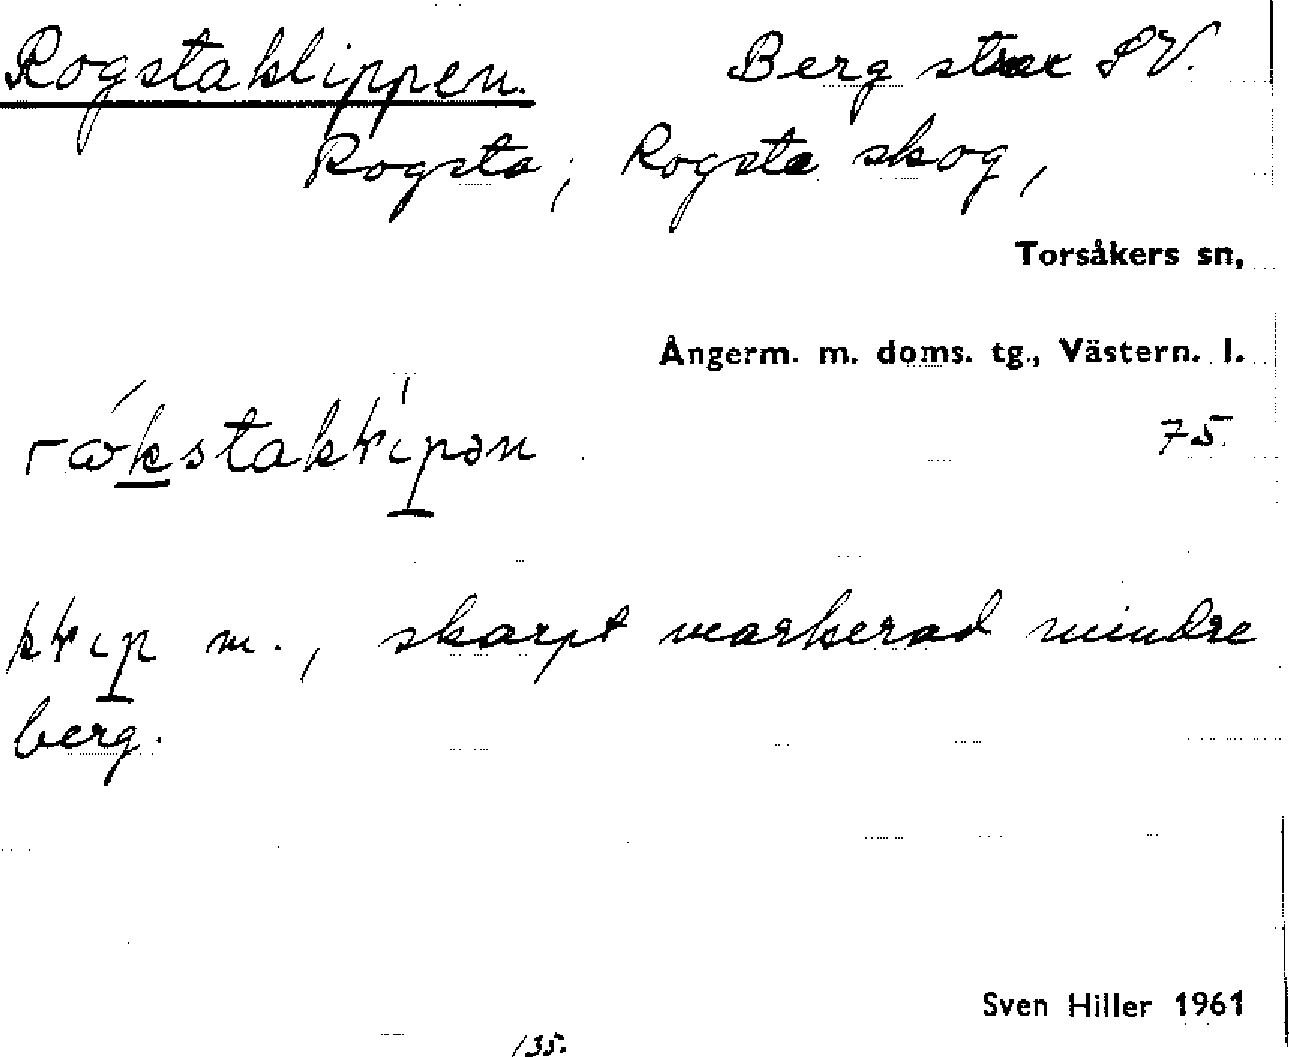 Rogstaklippen. Berg strax SV.
Rogsta; Rogsta skog,
Torsåkers sn,
Ångerm. m. doms. tg., Västern. l.
75.
m., skarpt markerad mindre
berg.
Sven Hiller 1961
135.